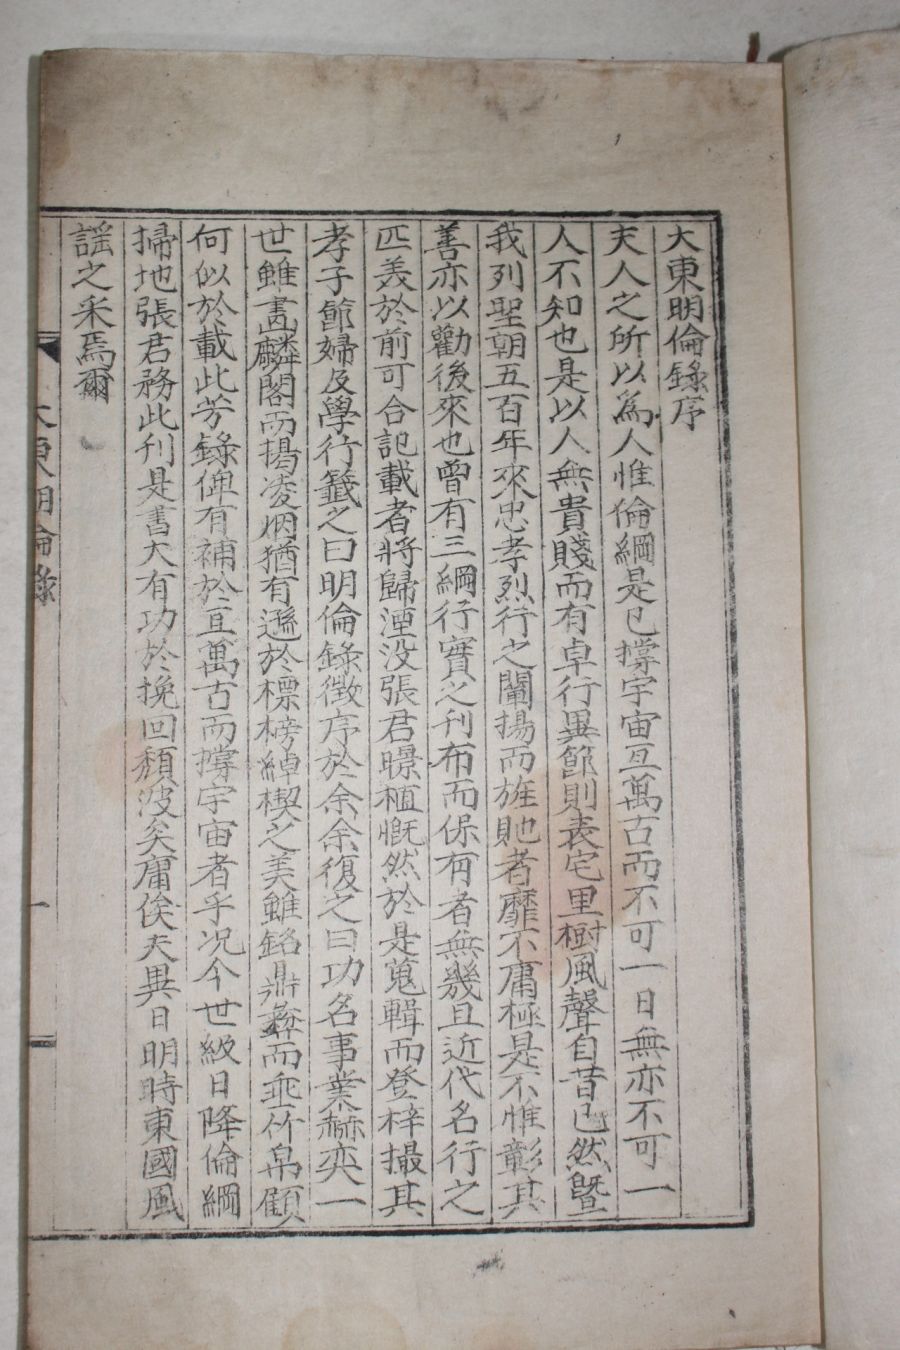 大東明倫錄序
夫人之所以爲人惟倫綱是已撐宇宙亙萬古而不可一日無亦不可一
人不知也是以人無貴賤而有卓行異節則表宅里樹風聲自昔已然曁
我列聖朝五百年來忠孝烈行之闡揚而旌貤者靡不庸極是不惟彰其
善亦以勸後來也曾有三綱行實之刊布而保有者無幾且近代名行之
匹美於前可合記載者將歸湮沒張君暻櫃慨然於是蒐輯而登梓撮其
孝子節婦及學行籤之曰明倫錄徵序於余余復之曰功名事業赫奕一
世雖畵麟閣而揭凌烟猶有遜於標榜綽楔之美雖銘鼎彝而垂竹帛顧
何似於載此芳錄俾有補於亙萬古而撐宇宙者乎况今世級日降倫綱
掃地張君務此刊是書大有功於挽回頹波矣庸俟夫異日明時東國風
謠之采焉爾
大東明倫錄
一